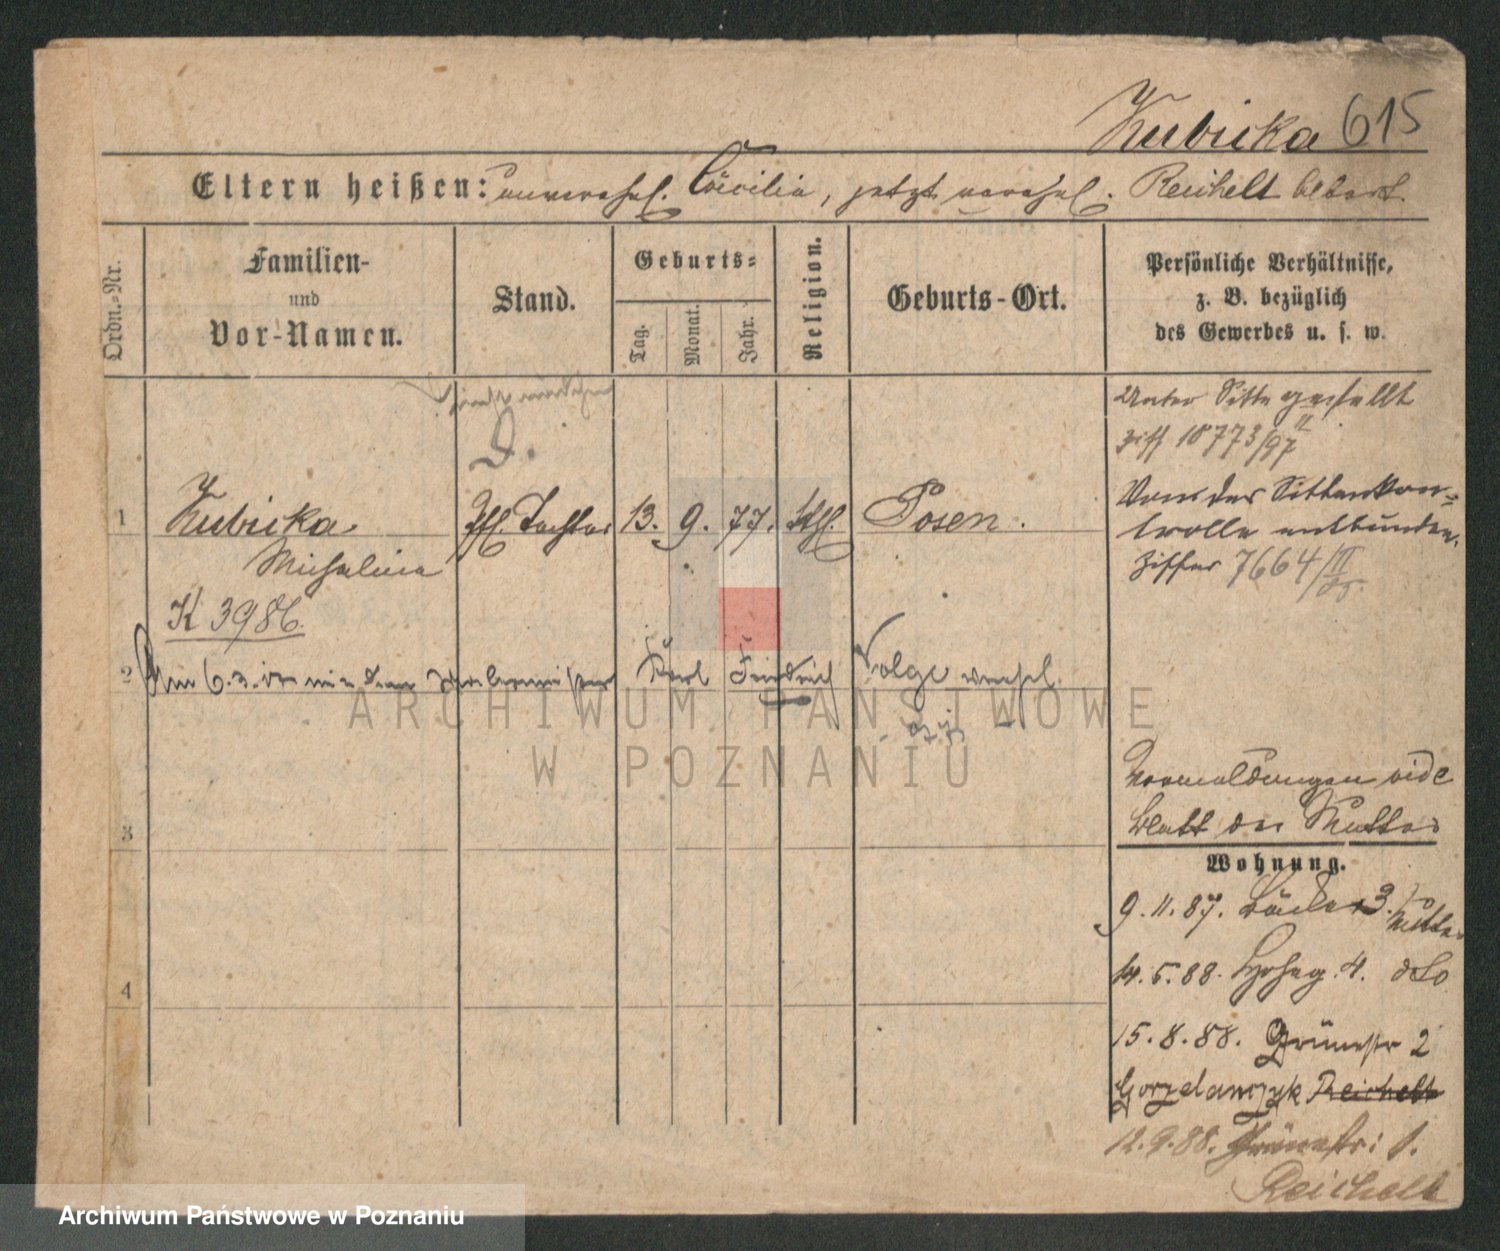 Kubicka 615
Eltern heißen: unverehel. Cäcilia, jetzt verehel. Reichelt
Ordn.-Nr.
Familien-
und
Vor-Namen.
Stand.
Geburts-
Tag.
Monat.
Jahr.
Religion.
Geburts-Ort.
Persönliche Verhältnisse,
z. B. bezüglich
des Gewerbes u. s. w.
Unter Sitte gestellt
Ziff 18773/97 II
D.
1 Kubicka Tochter 13. 9. 77. kth. Posen.
Michalina
K 3986.
Von der Sittenkon-
trolle entbunden.
Ziffer 7664/II
2 Am 6. 2. mit dem Karl Friedrich Folge
3
Vormeldungen vide
Blatt der Mutter
Wohnung.
9. 11. 87. Bäcker 3. Mutter
4
14. 5. 88. 4. dto
15. 8. 88. Grünestr 2
Gorzelanczyk Reichelt
12. 9. 88. Grünestr: 1.
Reichelt
ARCHIWUM PAŃSTWOWE
W POZNANIU
Archiwum Państwowe w Poznaniu